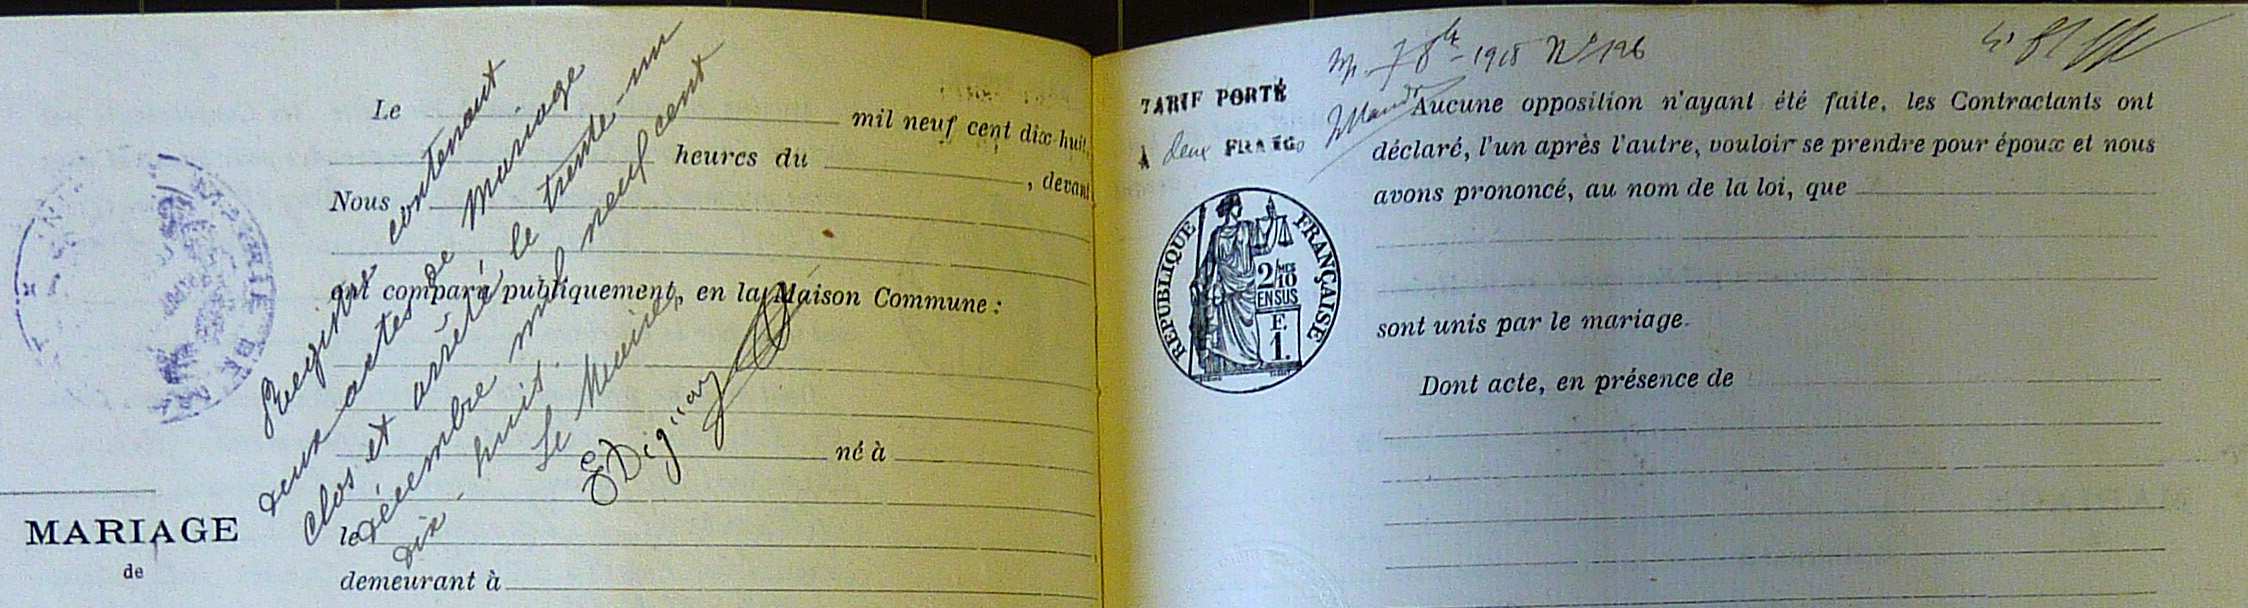 Le mil neuf cent dix-huit,
heures du , devant
Nous
ont comparu publiquement, en la Maison Commune :
né à
le
demeurant à
MARIAGE
de
Registre contenant
deux actes de Mariage
clos et arrêté, le trente-un
décembre mil neuf cent
dix-huit.
Le Maire,
TARIF PORTÉ
À deux FRANCS
RÉPUBLIQUE FRANÇAISE
2/10 MES
EN SUS
F.
1.
1918 N° 126
Aucune opposition n'ayant été faite, les Contractants ont
déclaré, l'un après l'autre, vouloir se prendre pour époux et nous
avons prononcé, au nom de la loi, que
sont unis par le mariage.
Dont acte, en présence de